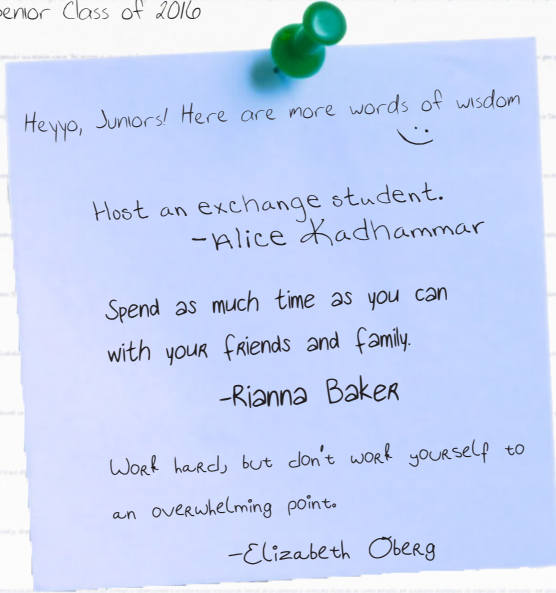 Senior Class of 2016
Heyyo, Juniors! Here are more words of wisdom
Host an exchange student.
-Alice Kadhammar
Spend as much time as you can
with your friends and family.
-Rianna Baker
Work hard, but don't work yourself to
an overwhelming point.
-Elizabeth Oberg